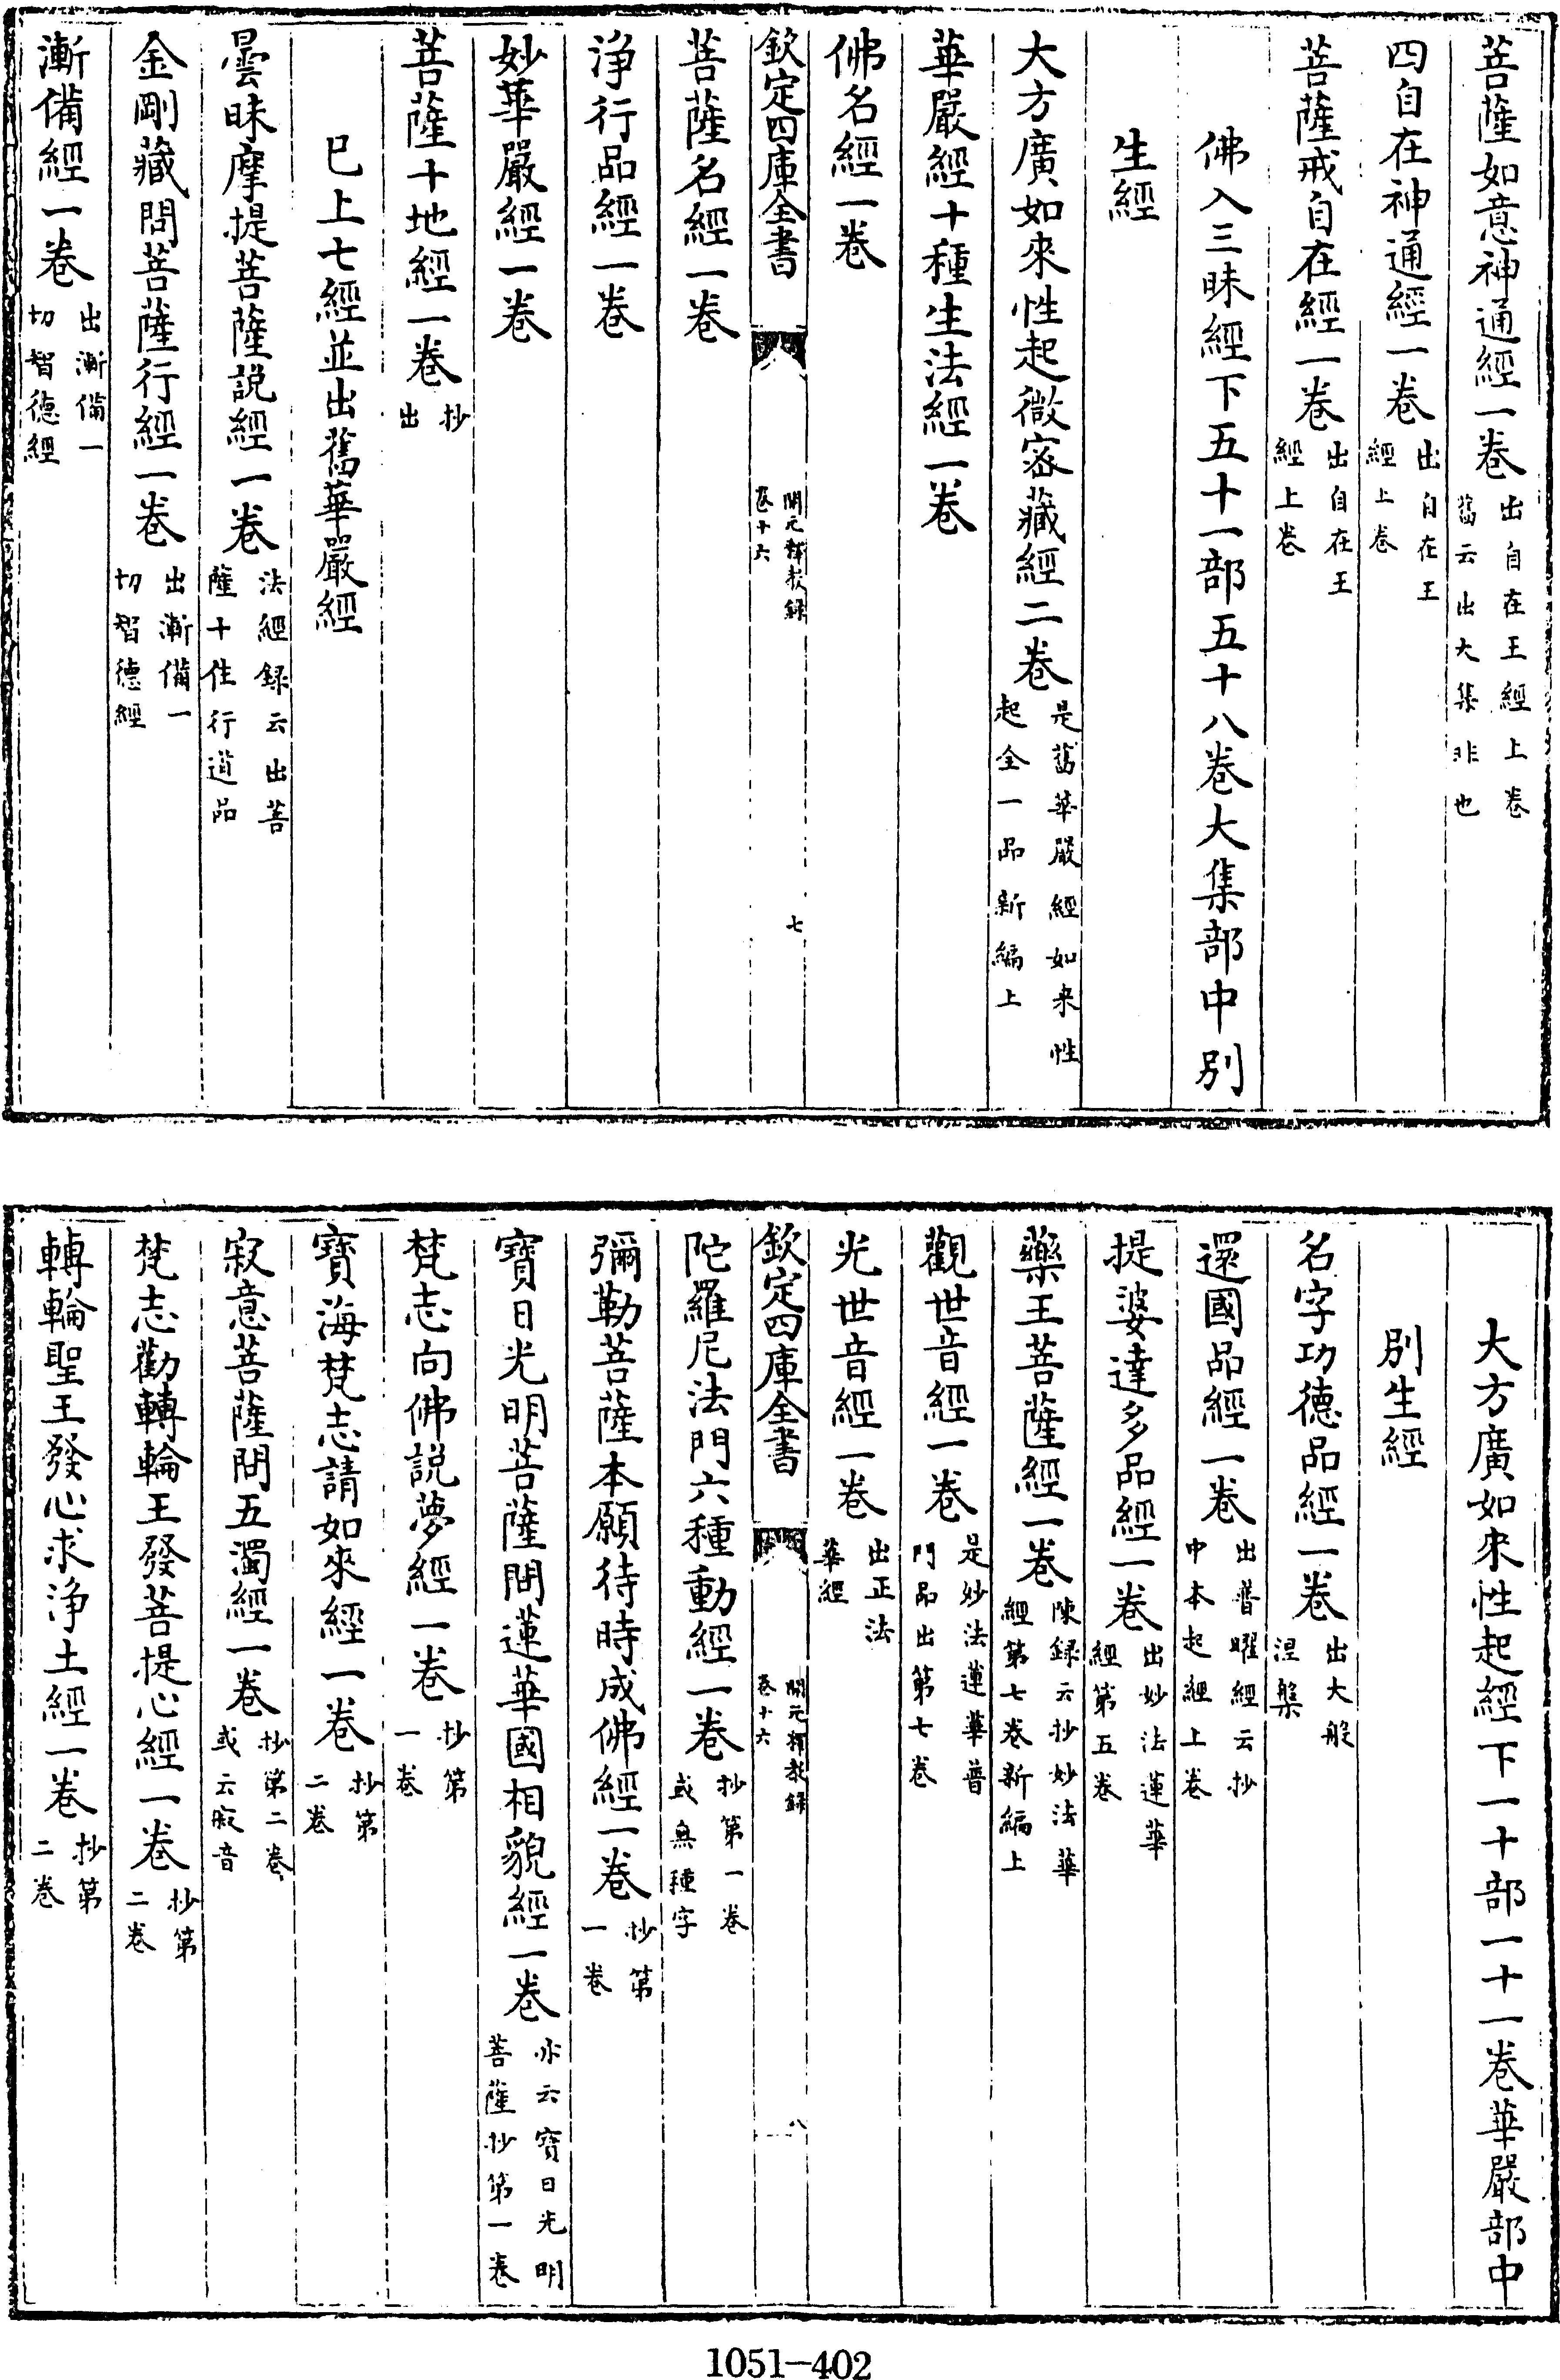 菩薩如意神通經一卷出自在王經上卷舊云出大集非也
四自在神通經一卷出自在王經上卷
菩薩戒自在經一卷出自在王經上卷
佛入三昧經下五十一部五十八卷大集部中別
生經
大方廣如來性起微密藏經二卷是舊華嚴經如来性起全一品新編上
華嚴經十種生法經一卷
佛名經一卷
欽定四庫全書 開元釋教録卷十六 七
菩薩名經一卷
淨行品經一卷
妙華嚴經一卷
菩薩十地經一卷抄出
已上七經並出舊華嚴經
曇昧摩提菩薩説經一卷法經録云出菩薩十住行道品
金剛藏問菩薩行經一卷出漸備一切智德經
漸備經一卷出漸備一切智德經
大方廣如來性起經下一十部一十一卷華嚴部中
別生經
名字功德品經一卷出大般涅槃
還國品經一卷出普曜經云抄中本起經上卷
提婆達多品經一卷出妙法蓮華經第五卷
藥王菩薩經一卷陳録云抄妙法華經第七卷新編上
觀世音經一卷是妙法蓮華普門品出第七卷
光世音經一卷出正法華經
欽定四庫全書 開元釋教録卷十六 八
陀羅尼法門六種動經一卷抄第一卷或無種字
彌勒菩薩本願待時成佛經一卷抄第一卷
寶日光明菩薩問蓮華國相貌經一卷亦云寶日光明菩薩抄第一卷
梵志向佛説夢經一卷抄第一卷
寶海梵志請如來經一卷抄第二卷
寂意菩薩問五濁經一卷抄第二卷或云寂音
梵志勸轉輪王發菩提心經一卷抄第二卷
轉輪聖王發心求淨土經一卷抄第二卷
1051-402